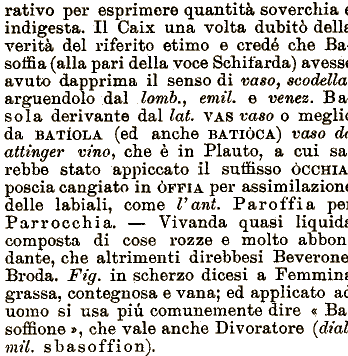 rativo per esprimere quantità soverchia e
indigesta. Il Caix una volta dubitò della
verità del riferito etimo e credé che Ba-
soffia (alla pari della voce Schifarda) avesse
avuto dapprima il senso di vaso, scodella,
arguendolo dal lomb., emil. e venez. Ba-
sola derivante dal lat. VAS vaso o meglio
da BATÍOLA (ed anche BATIÒCA) vaso da
attinger vino, che è in Plauto, a cui sa-
rebbe stato appiccato il suffisso ÒCCHIA
poscia cangiato in ÒFFIA per assimilazione
delle labiali, come l'ant. Paroffia per
Parrocchia. — Vivanda quasi liquida
composta di cose rozze e molto abbon-
dante, che altrimenti direbbesi Beverone,
Broda. Fig. in scherzo dicesi a Femmina
grassa, contegnosa e vana; ed applicato ad
uomo si usa piú comunemente dire « Ba-
soffione », che vale anche Divoratore (dial.
mil. sbasoffion).